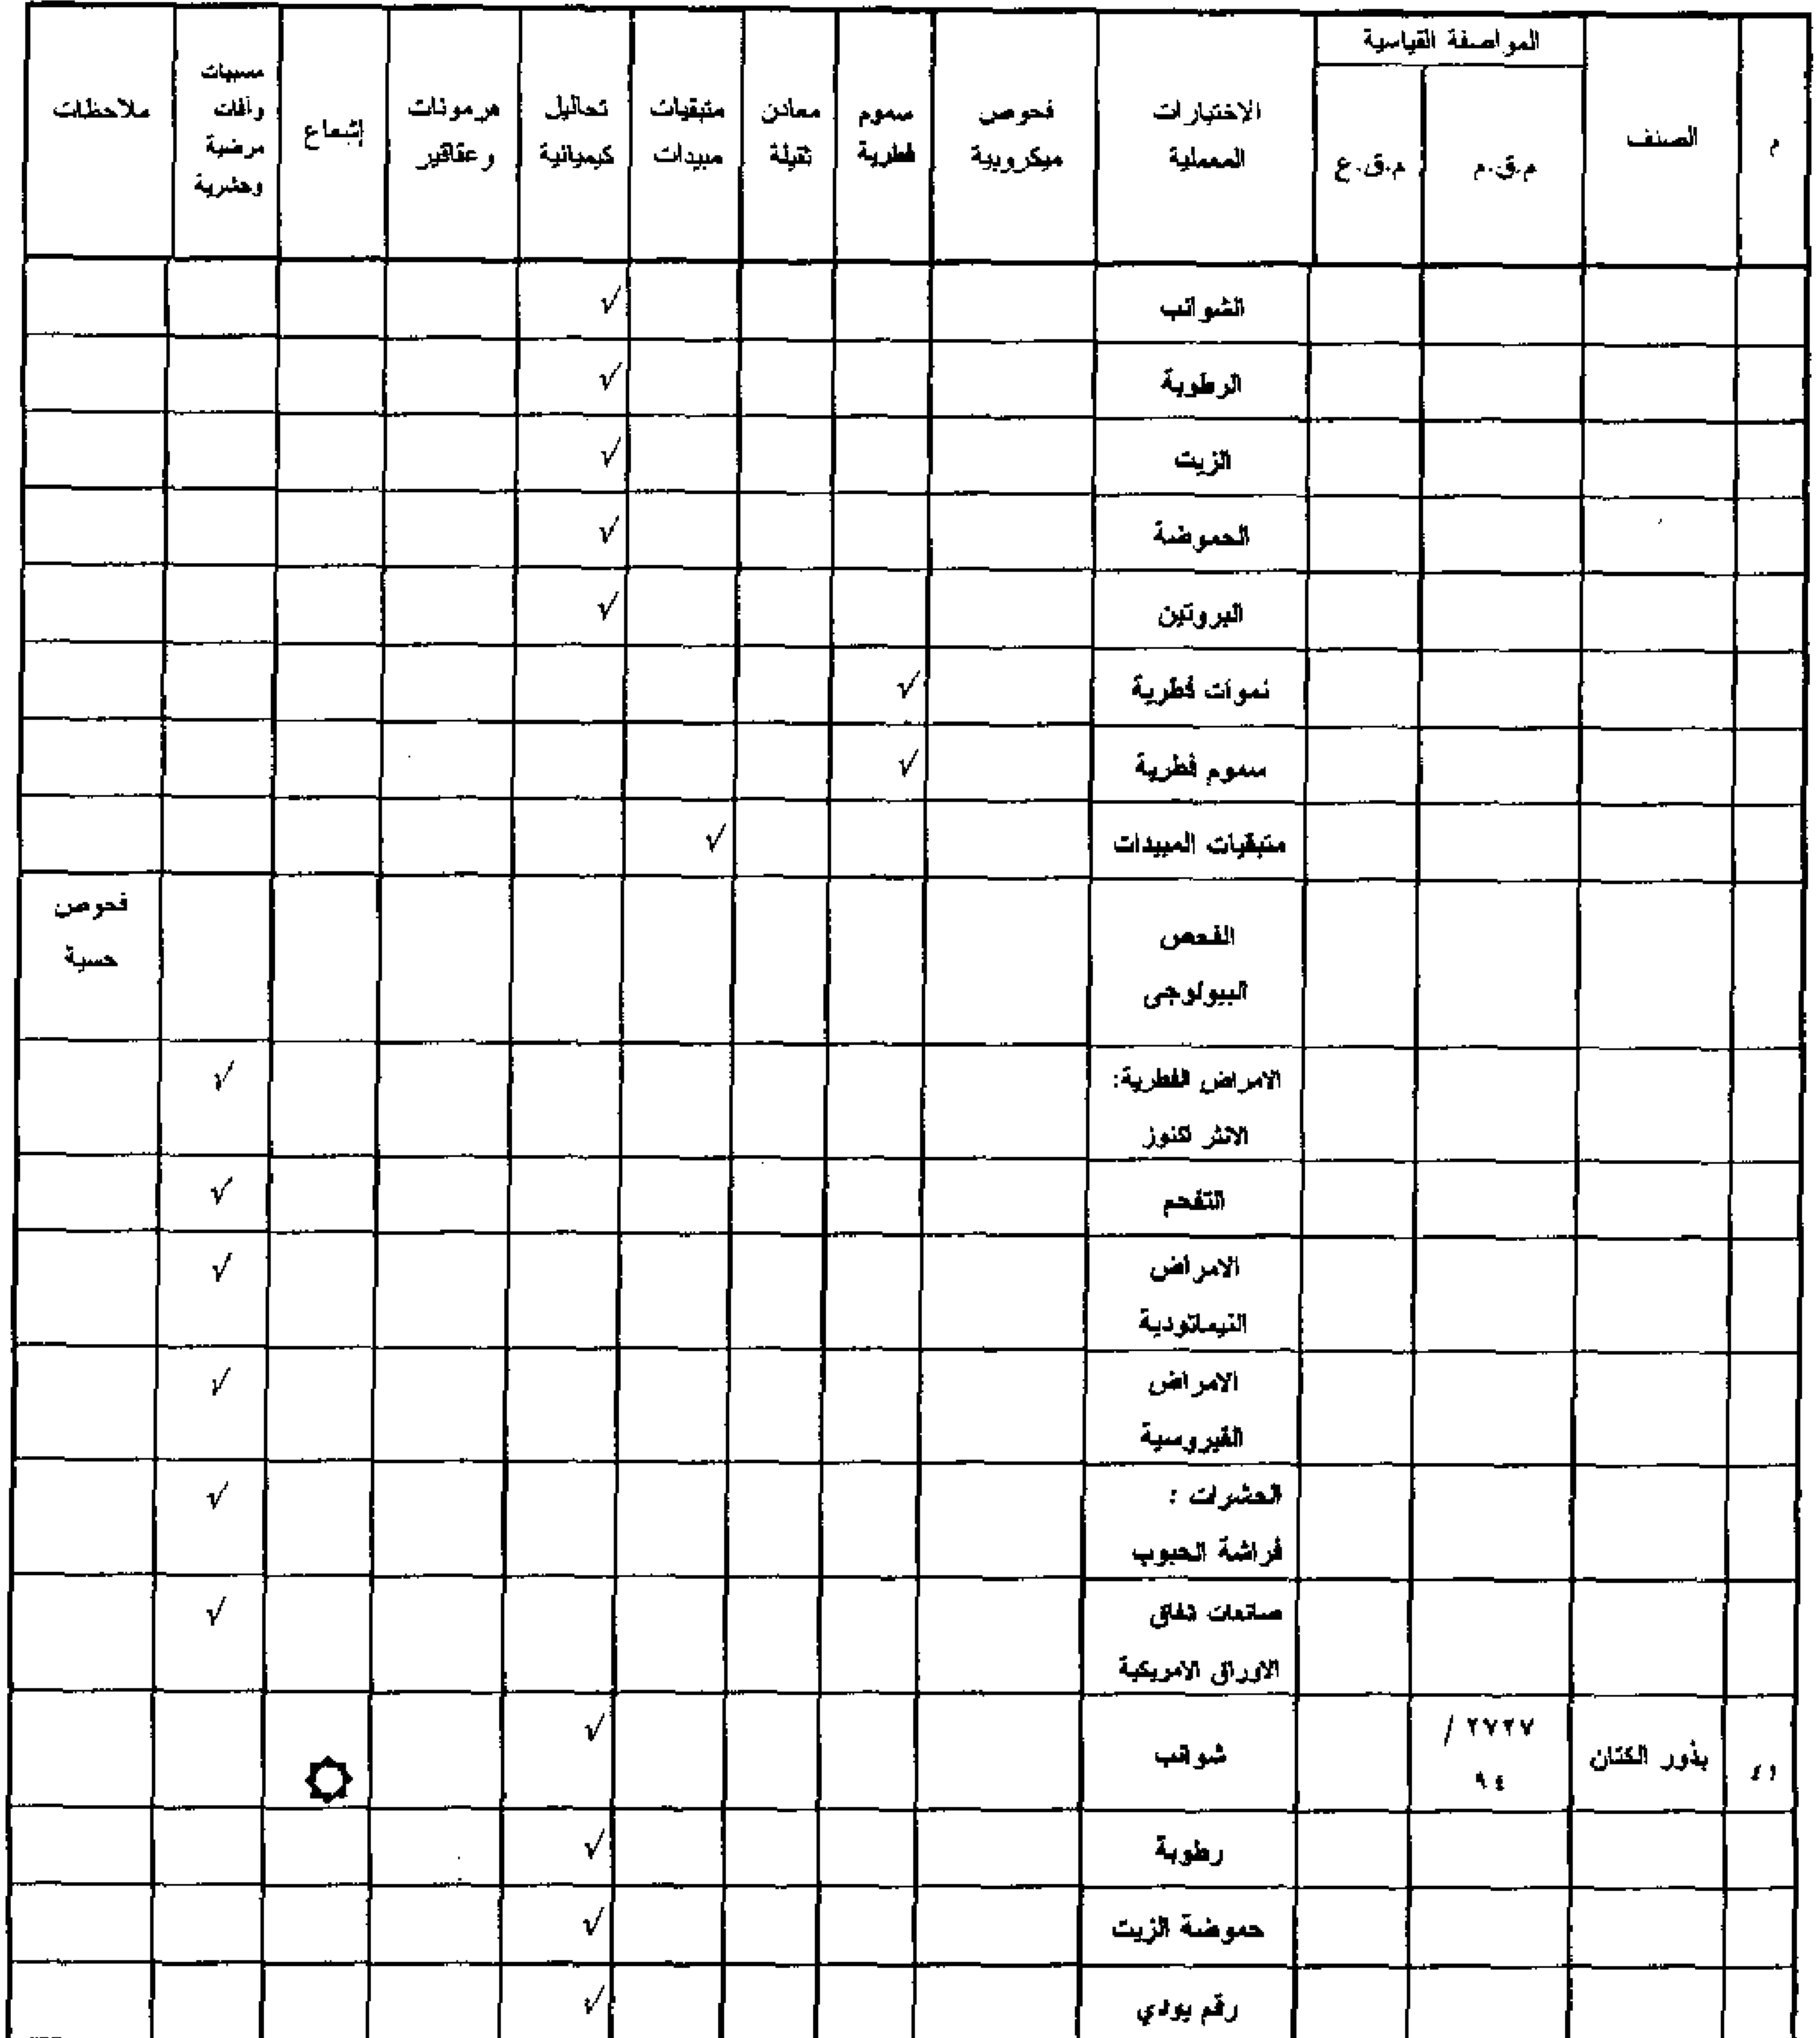 م
الصنف
المواصفة القياسية
م.ق.م
م.ق.ع
الاختبارات
المعملية
فحوص
ميكروبية
سموم
فطرية
معادن
ثقيلة
متبقيات
مبيدات
تحاليل
كيميائية
هرمونات
وعقاقير
إشعاع
مسببات
وآفات
مرضية
وحشرية
ملاحظات
الشوائب
√
الرطوبة
√
الزيت
√
الحموضة
√
البروتين
√
نموات فطرية
√
سموم فطرية
√
متبقيات المبيدات
√
الفحص
البيولوجى
فحوص
حسية
الامراض الفطرية:
الانثر اكنوز
√
التفحم
√
الامراض
النيماتودية
√
الامراض
الفيروسية
√
الحشرات :
فراشة الحبوب
√
صانعات انفاق
الاوراق الامريكية
√
٤١
بذور الكتان
٢٧٢٧ /
٩٤
شوائب
√
رطوبة
√
حموضة الزيت
√
رقم يودي
√